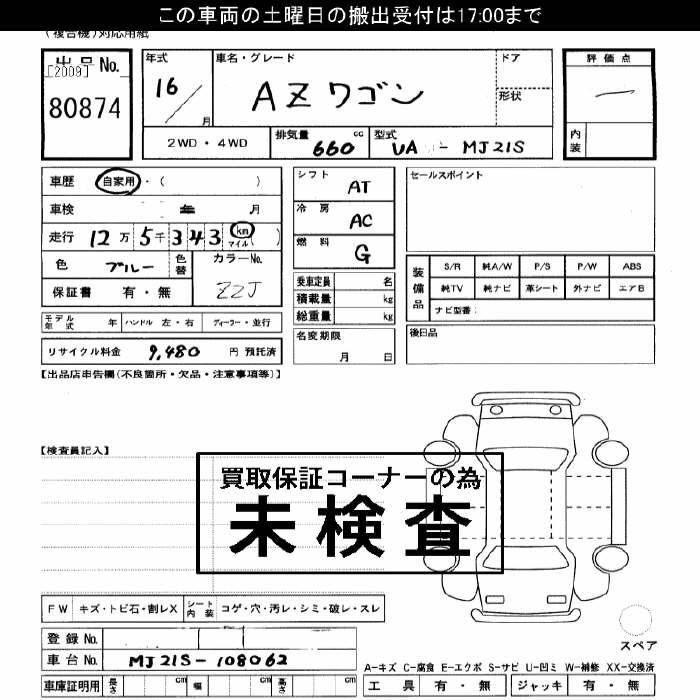 この車両の土曜日の搬出受付は17:00まで
(複合機)対応用紙
出品 No.
[2009]
80874
年式
16
月
車名・グレード
AZワゴン
ドア
形状
評価点
内装
2WD・4WD
排気量
660 cc
型式
UA - MJ21S
車歴 自家用・( )
車検 年 月
走行 12万5千343 km マイル ( )
色 ブルー
色替
カラーNo.
ZZJ
保証書 有・無
シフト AT
冷房 AC
燃料 G
乗車定員 名
積載量 kg
総重量 kg
セールスポイント
装備品
S/R 純A/W P/S P/W ABS
純TV 純ナビ 革シート 外ナビ エアB
ナビ型番:
モデル年式 年 ハンドル 左・右 ディーラー・並行
リサイクル料金 9,480 円 預託済
名変期限
月 日
後日品
【出品店申告欄(不良箇所・欠品・注意事項等)】
【検査員記入】
買取保証コーナーの為
未検査
FW キズ・トビ石・割レX シート内装 コゲ・穴・汚レ・シミ・破レ・スレ
登録 No.
車台 No. MJ21S-108062
車庫証明用 長さ cm 幅 cm 高さ cm
スペア
A-キズ C-腐食 E-エクボ S-サビ U-凹ミ W-補修 XX-交換済
工具 有・無 ジャッキ 有・無